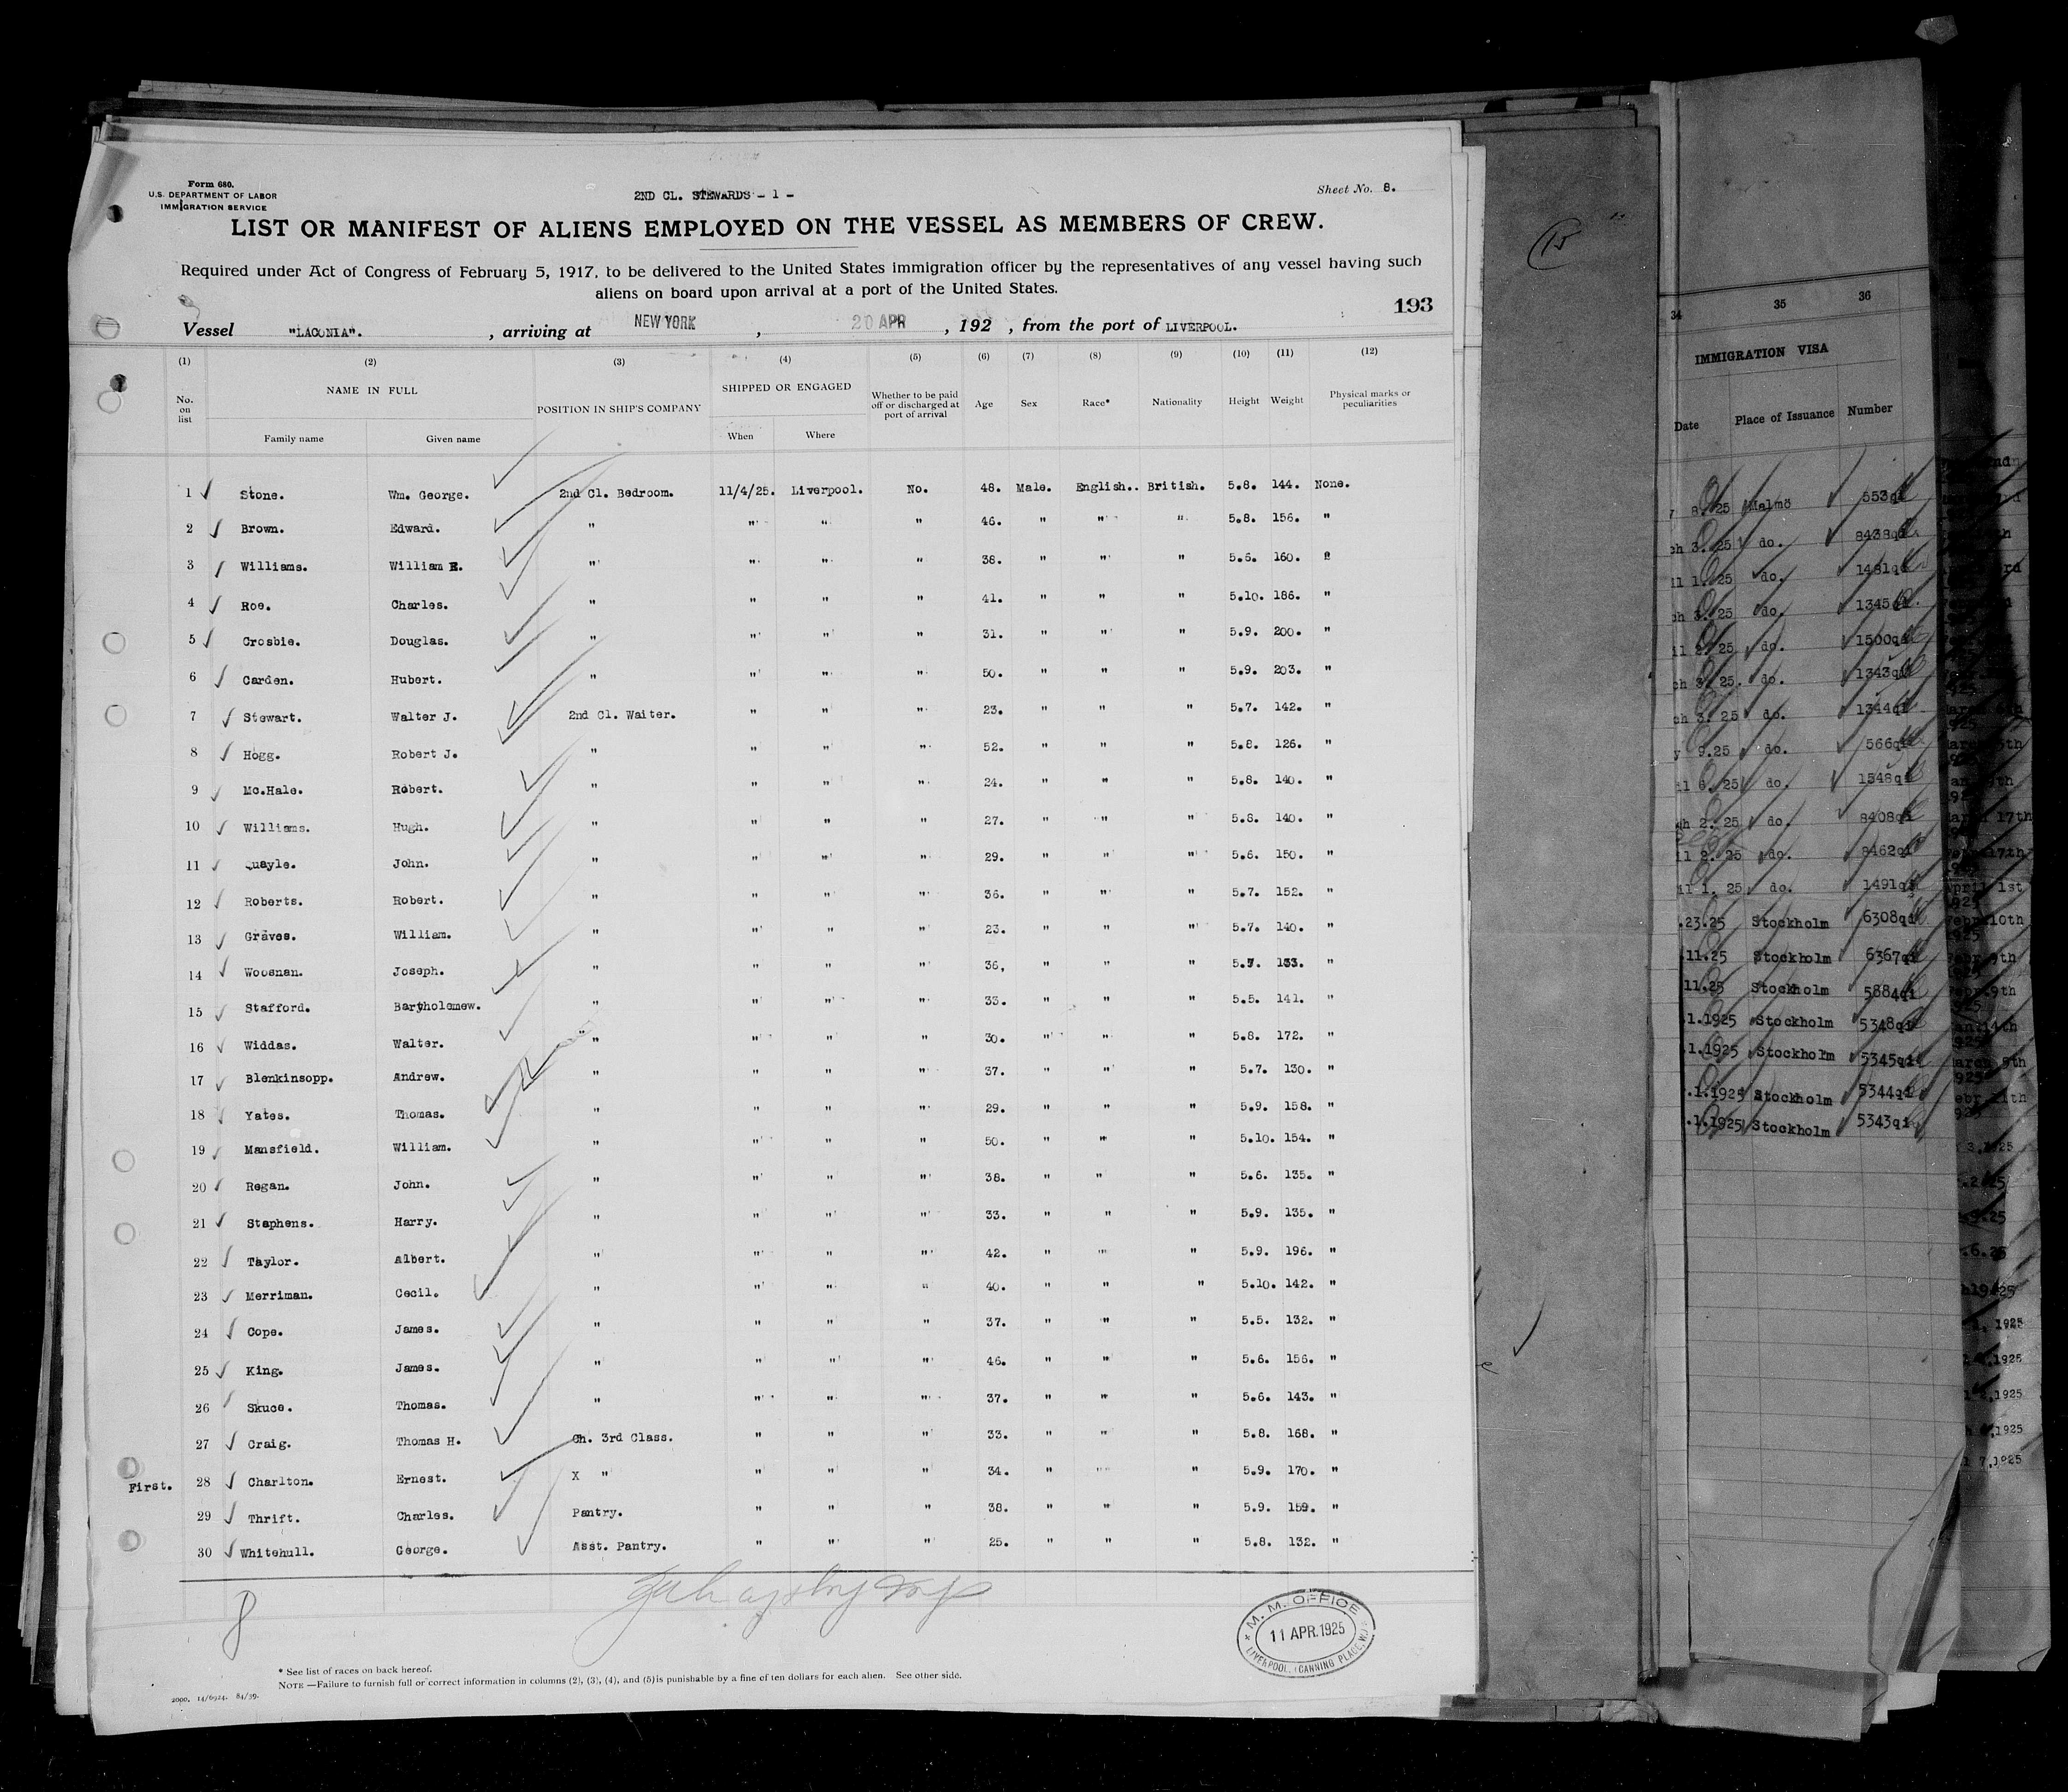 Form 680.
U.S. DEPARTMENT OF LABOR
IMMIGRATION SERVICE
2ND CL. STEWARDS - 1 -
Sheet No. 8.
LIST OR MANIFEST OF ALIENS EMPLOYED ON THE VESSEL AS MEMBERS OF CREW.
Required under Act of Congress of February 5, 1917, to be delivered to the United States immigration officer by the representatives of any vessel having such
aliens on board upon arrival at a port of the United States.
193
Vessel "LACONIA". , arriving at NEW YORK , 20 APR , 192 , from the port of LIVERPOOL.
(1) (2) (3) (4) (5) (6) (7) (8) (9) (10) (11) (12)
No. on list NAME IN FULL POSITION IN SHIP'S COMPANY SHIPPED OR ENGAGED Whether to be paid off or discharged at port of arrival Age Sex Race* Nationality Height Weight Physical marks or peculiarities
Family name Given name When Where
1 Stone. Wm. George. 2nd Cl. Bedroom. 11/4/25. Liverpool. No. 48. Male. English.. British. 5.8. 144. None.
2 Brown. Edward. " " " " 46. " " " 5.8. 156. "
3 Williams. William E. " " " " 38. " " " 5.6. 160. "
4 Roe. Charles. " " " " 41. " " " 5.10. 186. "
5 Crosbie. Douglas. " " " " 31. " " " 5.9. 200. "
6 Carden. Hubert. " " " " 50. " " " 5.9. 203. "
7 Stewart. Walter J. 2nd Cl. Waiter. " " " 23. " " " 5.7. 142. "
8 Hogg. Robert J. " " " " 52. " " " 5.8. 126. "
9 Mc.Hale. Robert. " " " " 24. " " " 5.8. 140. "
10 Williams. Hugh. " " " " 27. " " " 5.8. 140. "
11 Quayle. John. " " " " 29. " " " 5.6. 150. "
12 Roberts. Robert. " " " " 36. " " " 5.7. 152. "
13 Graves. William. " " " " 23. " " " 5.7. 140. "
14 Woosnan. Joseph. " " " " 36, " " " 5.7. 133. "
15 Stafford. Bartholomew. " " " " 33. " " " 5.5. 141. "
16 Widdas. Walter. " " " " 30. " " " 5.8. 172. "
17 Blenkinsopp. Andrew. " " " " 37. " " " 5.7. 130. "
18 Yates. Thomas. " " " " 29. " " " 5.9. 158. "
19 Mansfield. William. " " " " 50. " " " 5.10. 154. "
20 Regan. John. " " " " 38. " " " 5.6. 135. "
21 Stephens. Harry. " " " " 33. " " " 5.9. 135. "
22 Taylor. Albert. " " " " 42. " " " 5.9. 196. "
23 Merriman. Cecil. " " " " 40. " " " 5.10. 142. "
24 Cope. James. " " " " 37. " " " 5.5. 132. "
25 King. James. " " " " 46. " " " 5.6. 156. "
26 Skuce. Thomas. " " " " 37. " " " 5.6. 143. "
27 Craig. Thomas H. Ch. 3rd Class. " " " 33. " " " 5.8. 168. "
First. 28 Charlton. Ernest. X " " " " 34. " " " 5.9. 170. "
29 Thrift. Charles. Pantry. " " " 38. " " " 5.9. 159. "
30 Whitehull. George. Asst. Pantry. " " " 25. " " " 5.8. 132. "
8
M. M. OFFICE
11 APR.1925
LIVERPOOL, CANNING PLACE, W.I
* See list of races on back hereof.
NOTE —Failure to furnish full or correct information in columns (2), (3), (4), and (5) is punishable by a fine of ten dollars for each alien. See other side.
2000. 14/6924. 84/59.
15
34 35 36
IMMIGRATION VISA
Date Place of Issuance Number
8.25 Malmö 553qi
3.25 do. 8438qi
1.25 do. 1481qi
3.25 do. 1345qi
2.25 do. 1500qi
3.25. do. 1343qi
3.25 do. 1344qi
9.25 do. 566qi
6.25 do. 1548qi
2.25 do. 8408qi
2.25 do. 8462qi
1.25 do. 1491qi
.23.25 Stockholm 6308qi
11.25 Stockholm 6367qi
11.25 Stockholm 5884qi
.1.1925 Stockholm 5348qi
.1.1925 Stockholm 5345qi
.1.1925 Stockholm 5344qi
.1.1925 Stockholm 5343qi